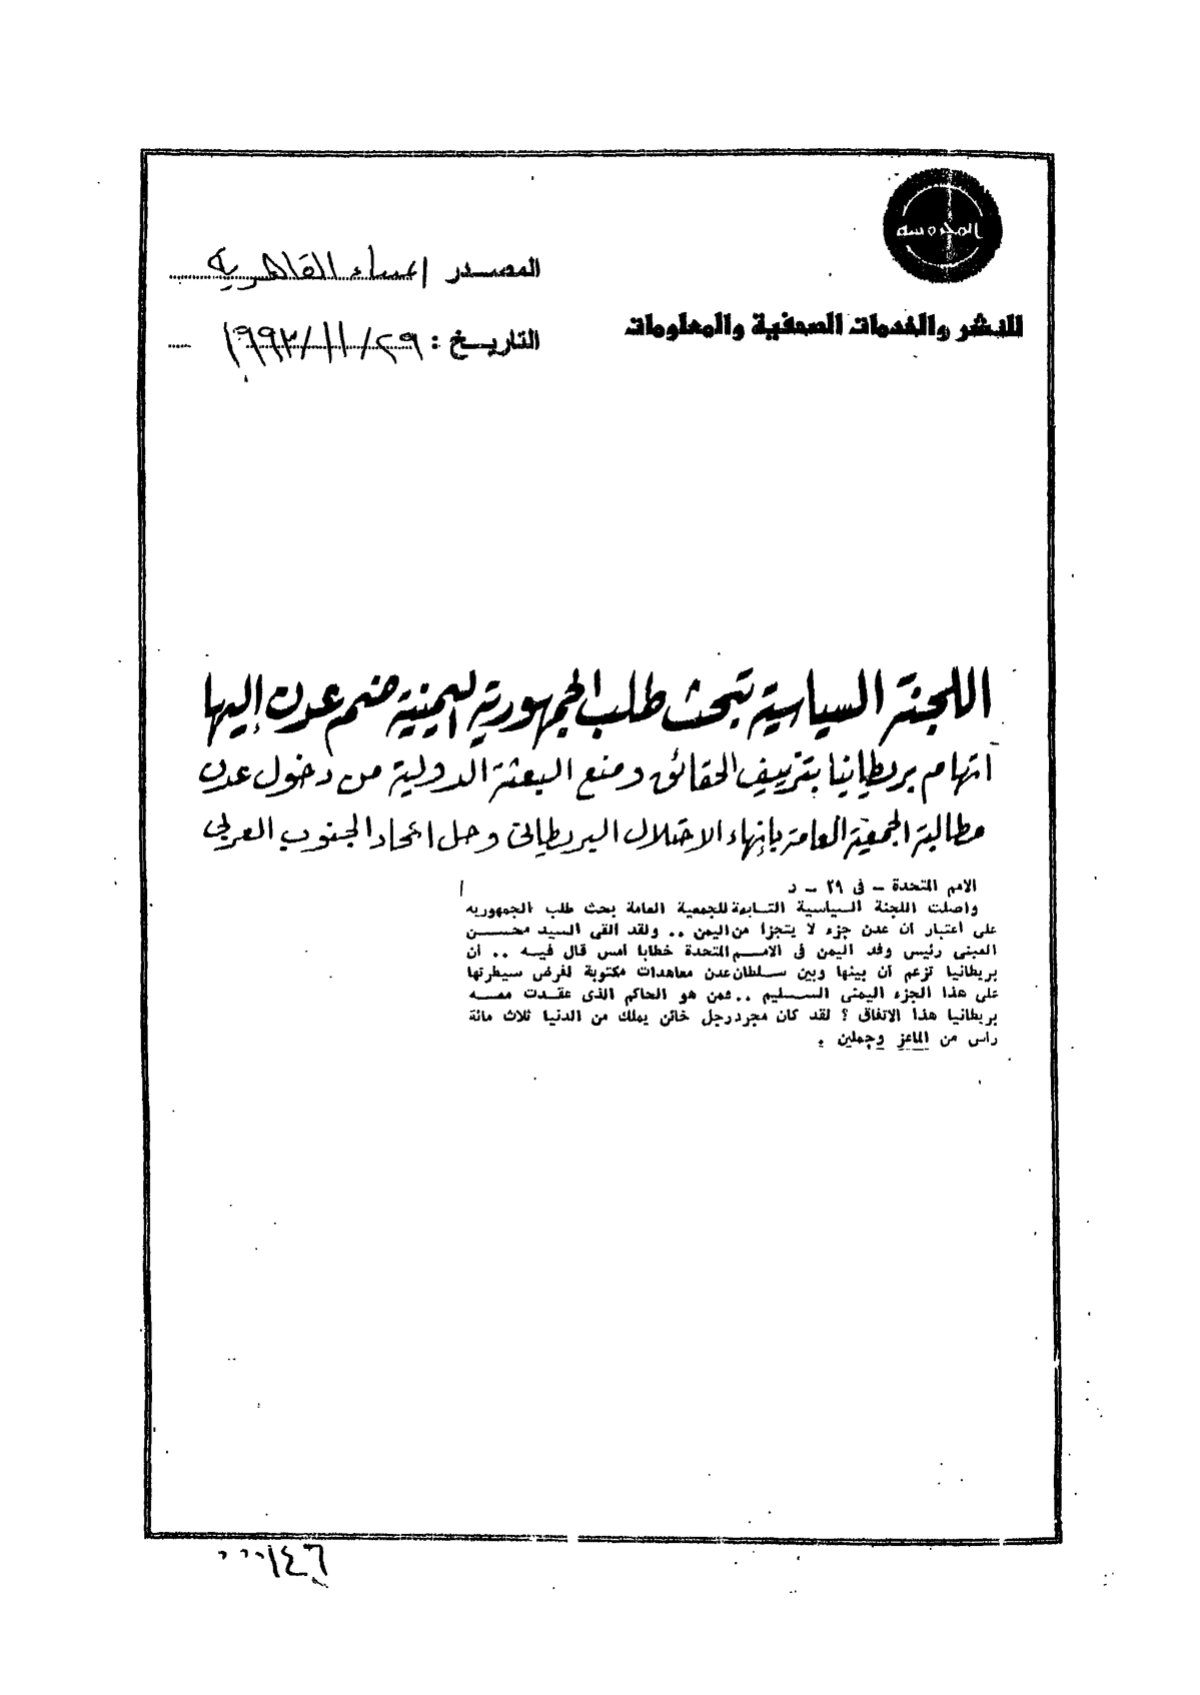 المحروسة
المصدر المساء القاهرية
للنشر والخدمات الصحفية والمعلومات
التاريخ : ٢٩/١١/١٩٩٣
اللجنة السياسية تبحث طلب الجمهورية اليمنية ضم عدن إليها
اتهام بريطانيا بتزييف الحقائق ومنع البعثة الدولية من دخول عدن
مطالبة الجمعية العامة بإنهاء الاحتلال البريطانى وحل اتحاد الجنوب العربى
الامم المتحدة - فى ٢٩ - د
واصلت اللجنة السياسية التابعة للجمعية العامة بحث طلب الجمهوريه
على اعتبار ان عدن جزء لا يتجزا من اليمن .. ولقد القى السيد محسن
العينى رئيس وفد اليمن فى الامم المتحدة خطابا امس قال فيه .. أن
بريطانيا تزعم أن بينها وبين سلطان عدن معاهدات مكتوبة لغرض سيطرتها
على هذا الجزء اليمنى السليم .. فمن هو الحاكم الذى عقدت معه
بريطانيا هذا الاتفاق ؟ لقد كان مجرد رجل خائن يملك من الدنيا ثلاث مائة
راس من الماعز وجملين .
٠٠٠١٤٦